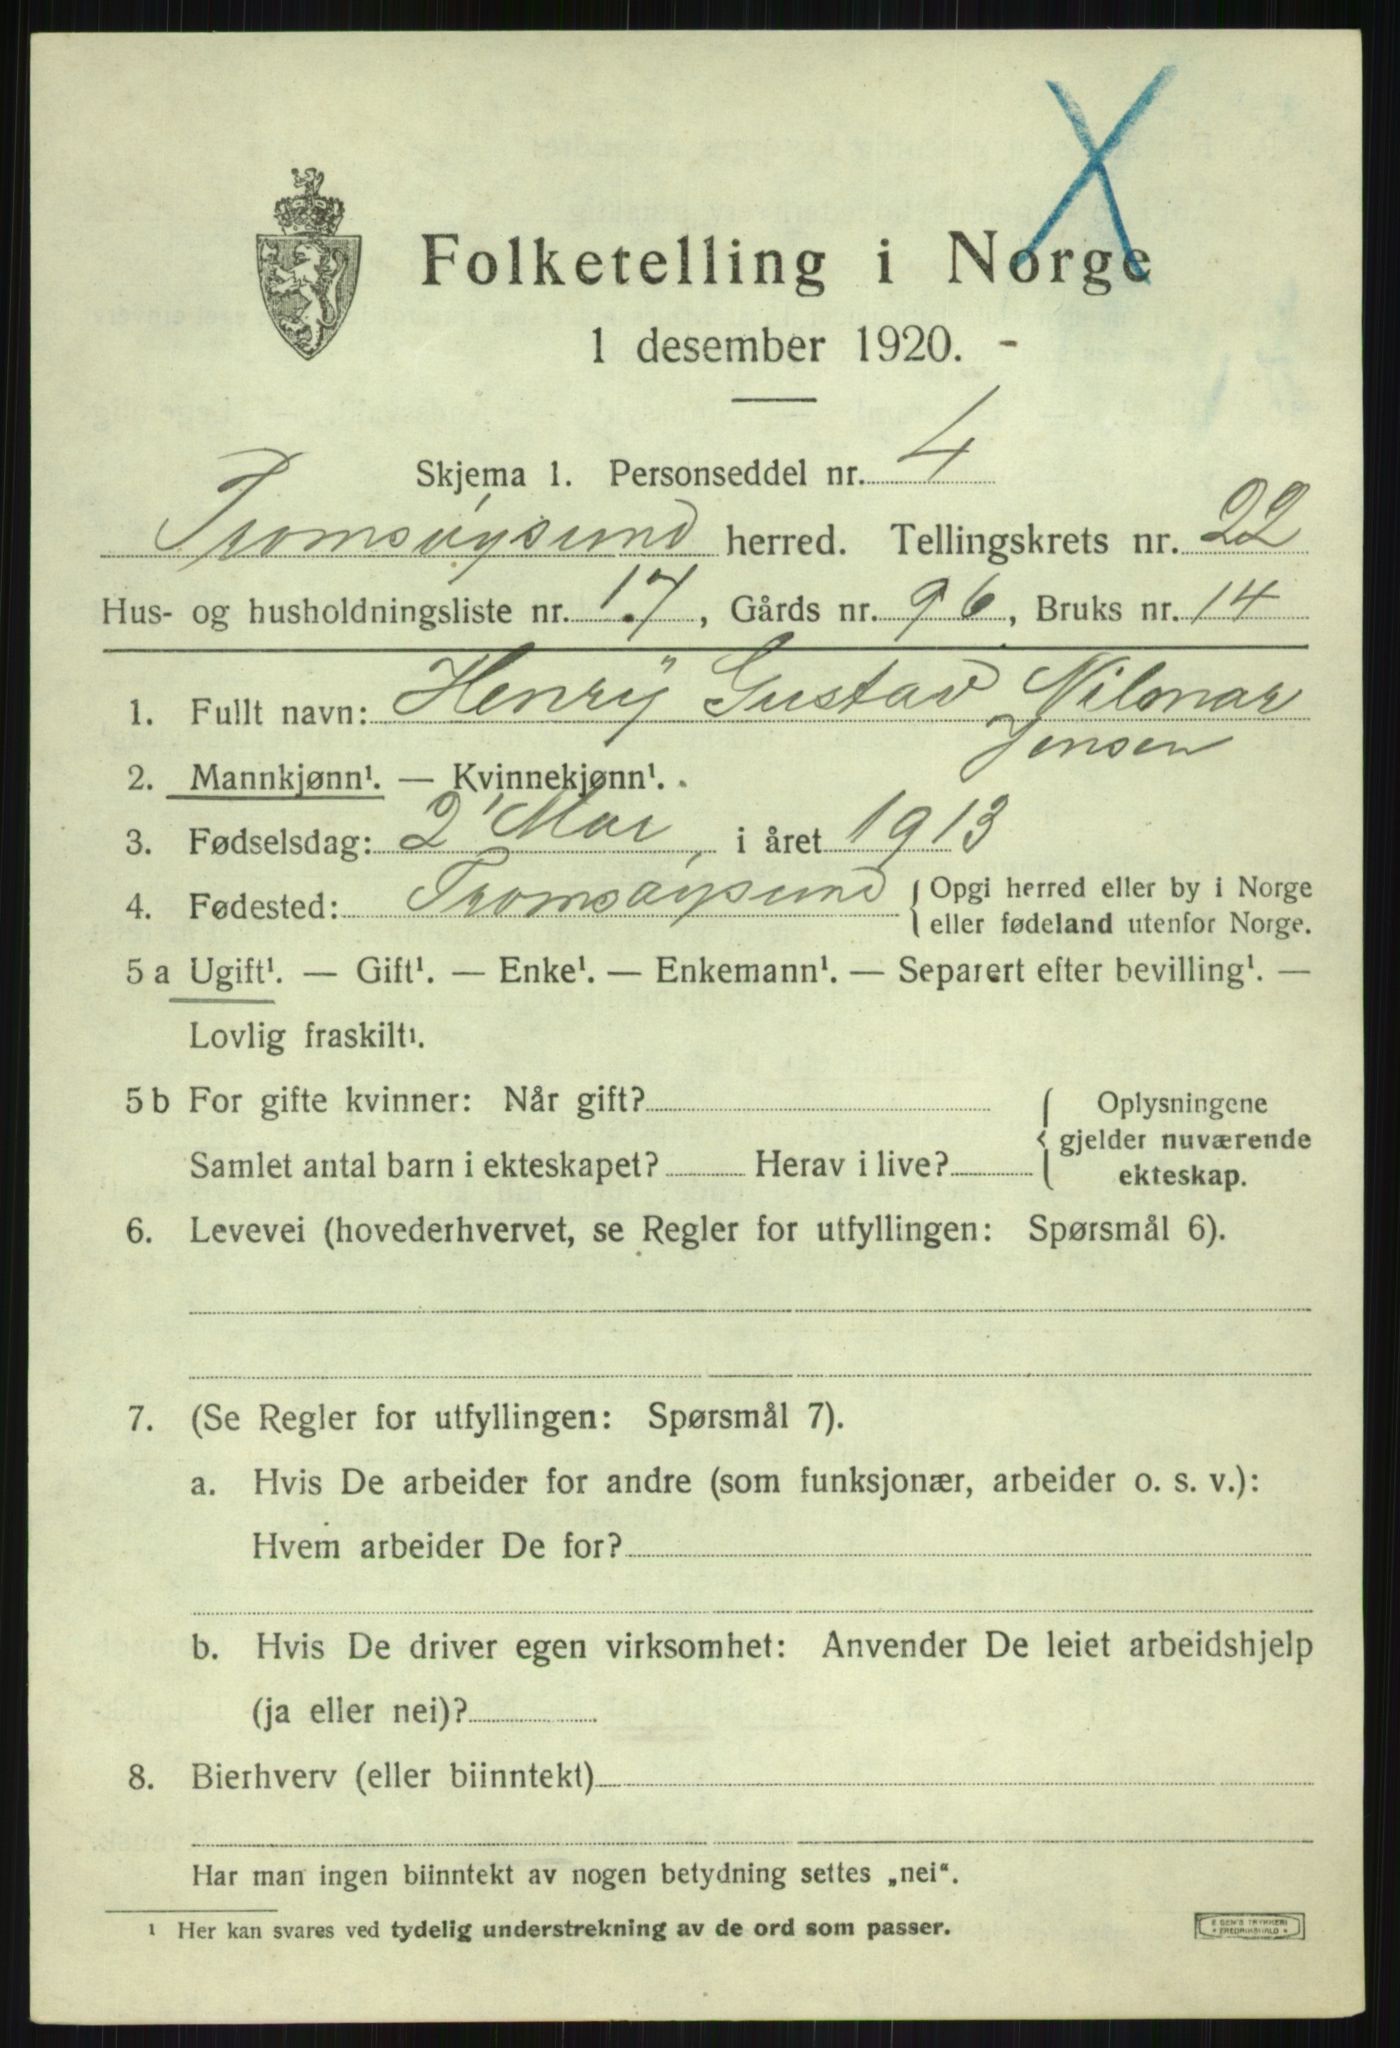 Folketelling i Norge
1 desember 1920.
Skjema 1. Personseddel nr. 4
Tromsøysund herred. Tellingskrets nr. 22
Hus- og husholdningsliste nr. 17, Gårds nr. 96, Bruks nr. 14
1. Fullt navn: Henry Gustav Nilmar
Jensen
2. Mannkjønn¹. — Kvinnekjønn¹.
3. Fødselsdag: 2 Mai, i året 1913
4. Fødested: Tromsøysund { Opgi herred eller by i Norge
eller fødeland utenfor Norge.
5 a Ugift¹. — Gift¹. — Enke¹. — Enkemann¹. — Separert efter bevilling¹. —
Lovlig fraskilt¹.
5 b For gifte kvinner: Når gift?
Samlet antal barn i ekteskapet? Herav i live?
{ Oplysningene
gjelder nuværende
ekteskap.
6. Levevei (hovederhvervet, se Regler for utfyllingen: Spørsmål 6).
7. (Se Regler for utfyllingen: Spørsmål 7).
a. Hvis De arbeider for andre (som funksjonær, arbeider o. s. v.):
Hvem arbeider De for?
b. Hvis De driver egen virksomhet: Anvender De leiet arbeidshjelp
(ja eller nei)?
8. Bierhverv (eller biinntekt)
Har man ingen biinntekt av nogen betydning settes „nei“.
¹ Her kan svares ved tydelig understrekning av de ord som passer.
TRYKKERI
FREDRIKSHALD